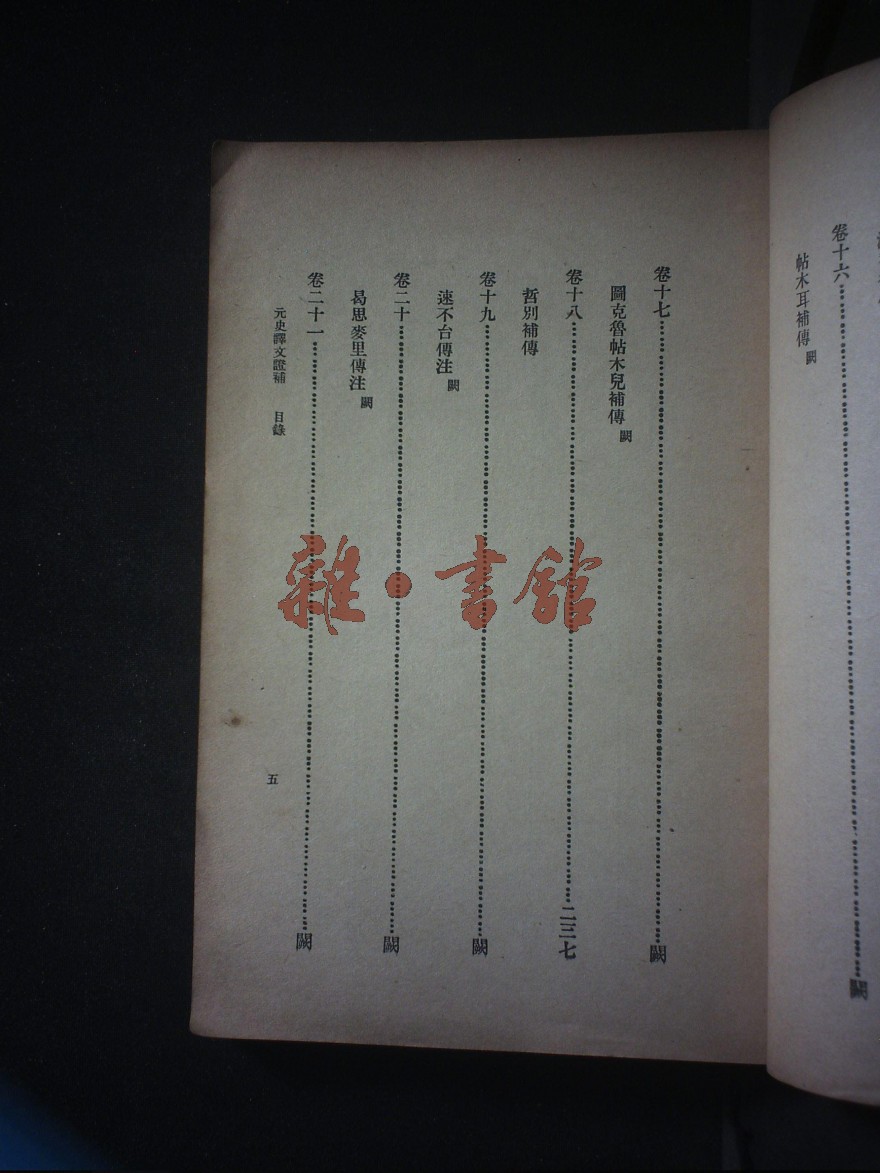 卷十六……闕
帖木耳補傳 闕
卷十七……闕
圖克魯帖木兒補傳 闕
卷十八……二三七
哲別補傳
卷十九……闕
速不台傳注 闕
卷二十……闕
曷思麥里傳注 闕
卷二十一……闕
元史譯文證補 目錄
五
雜·書館